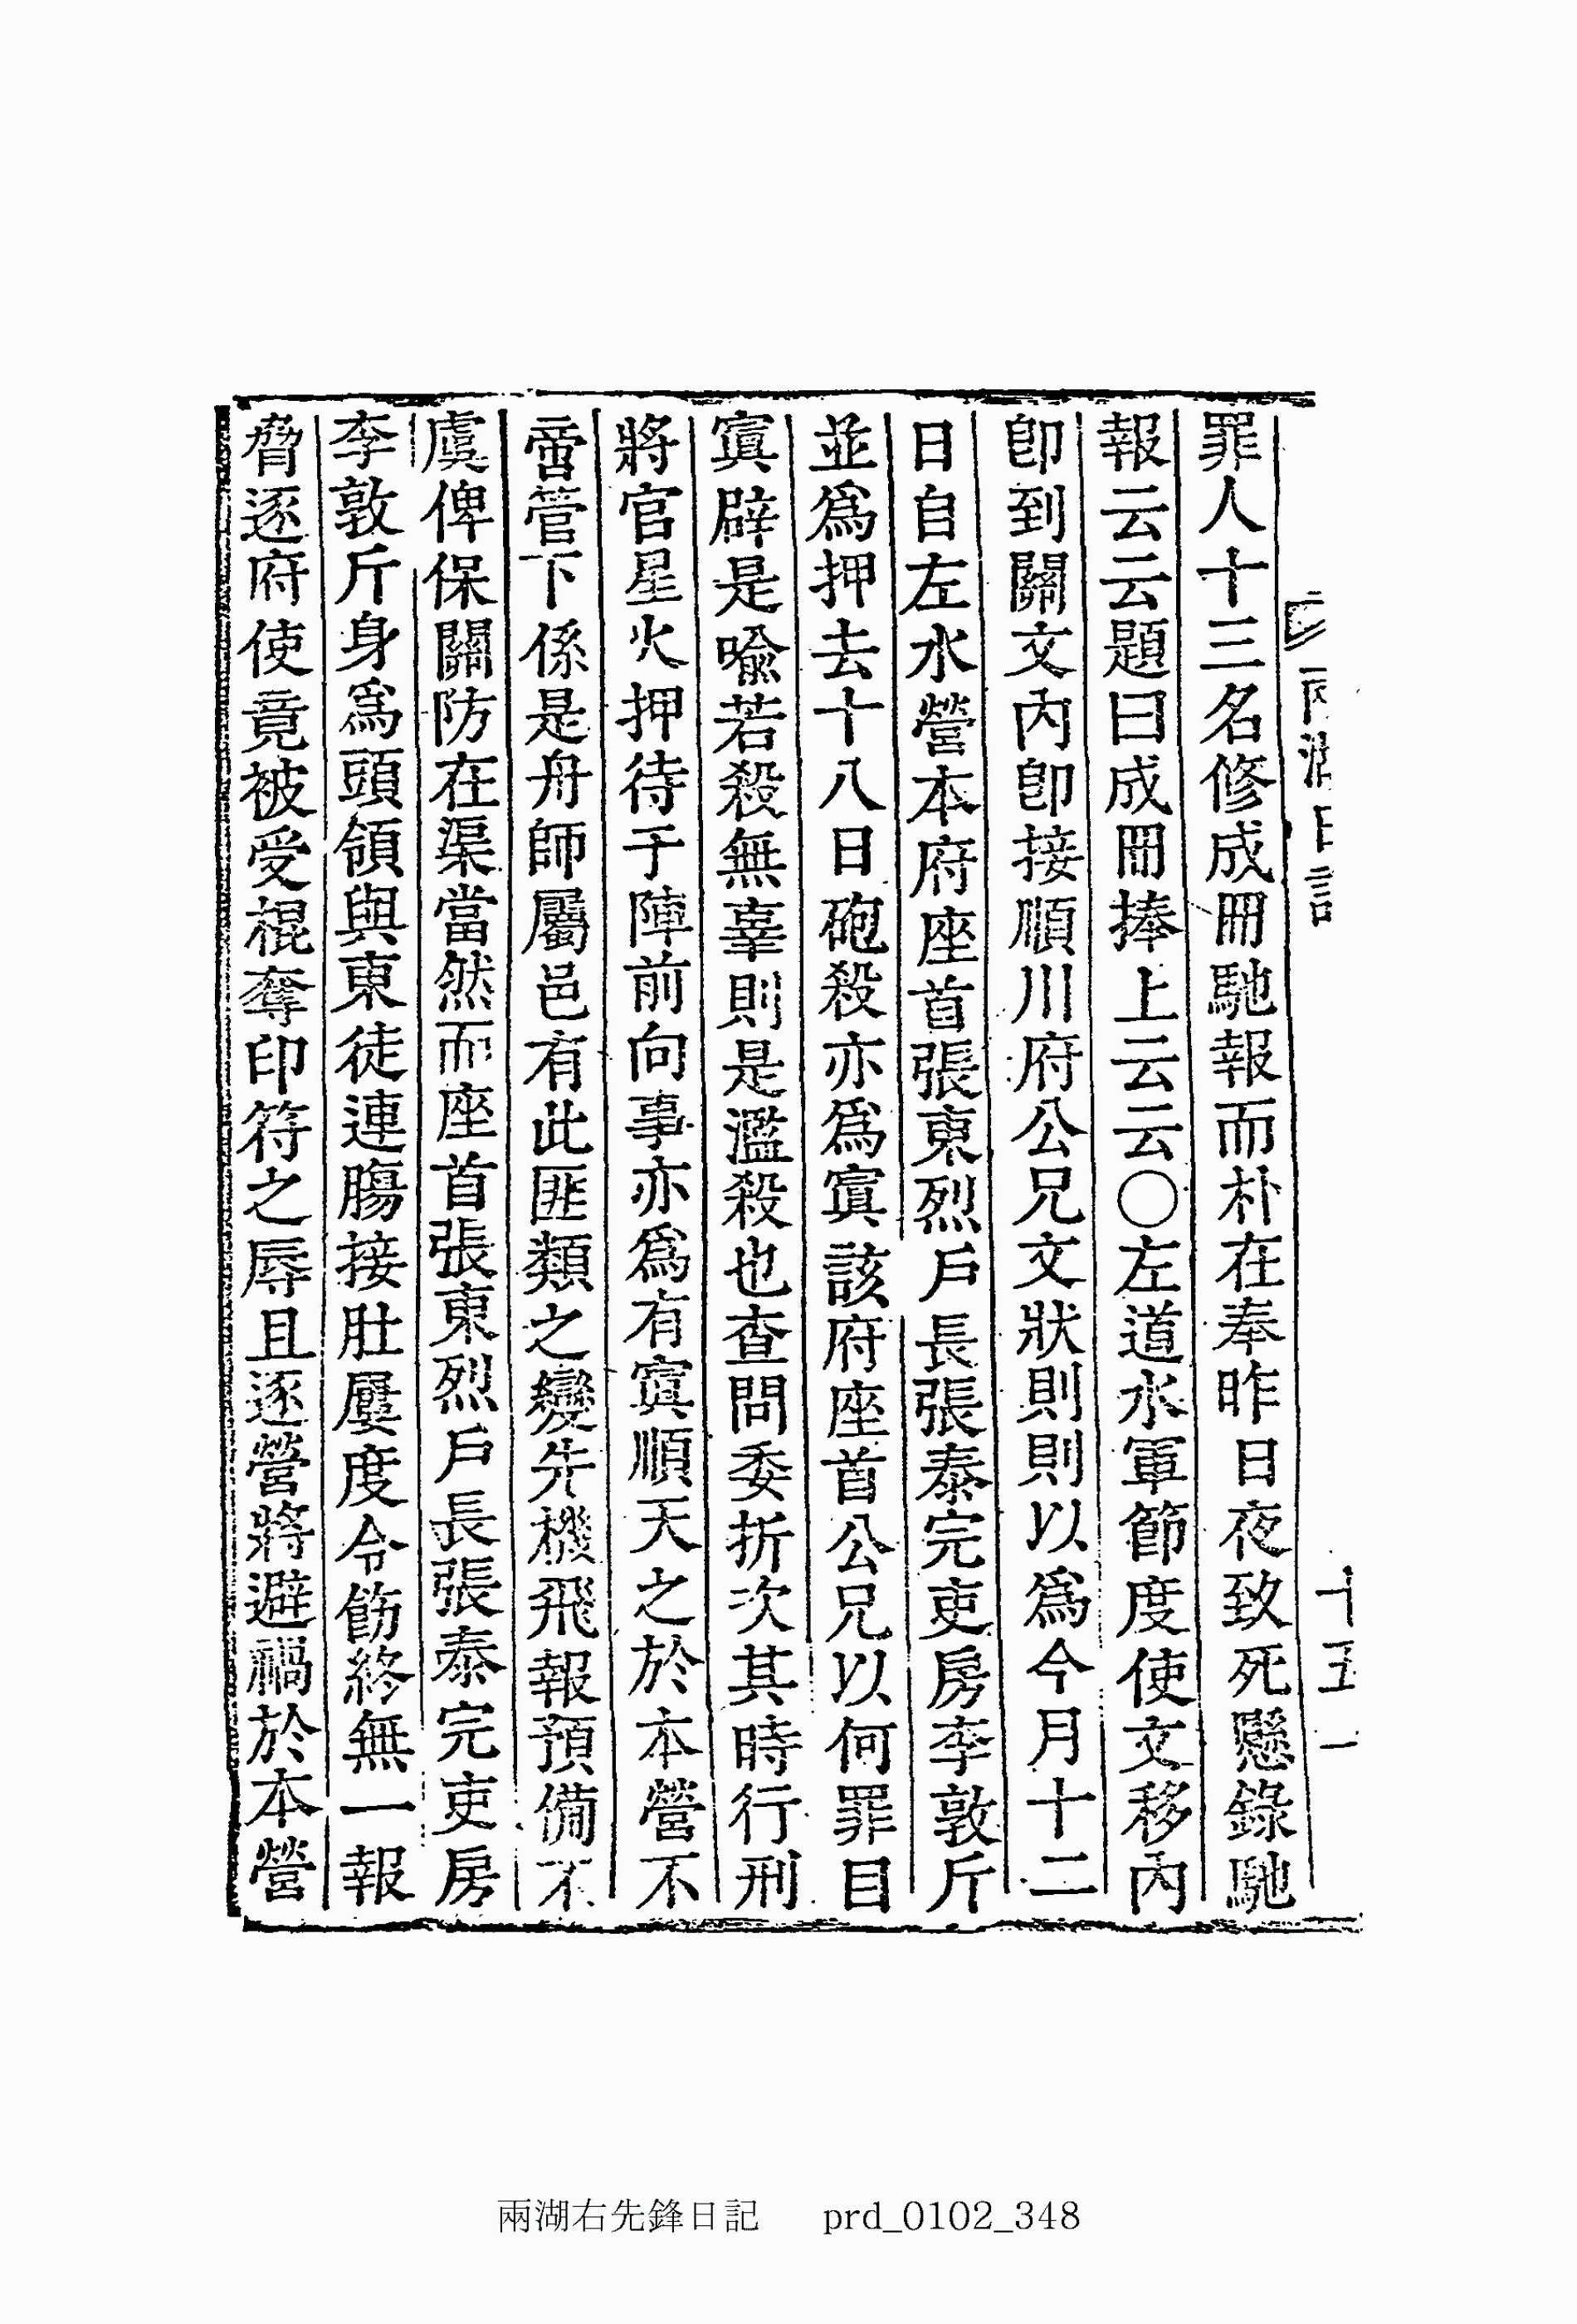 兩湖日記
十五
罪人十三名修成冊馳報而朴在奉昨日夜致死懸錄馳
報云云題曰成冊捧上云云〇左道水軍節度使文移內
卽到關文內卽接順川府公兄文狀則則以爲今月十二
日自左水營本府座首張東烈戶長張泰完吏房李敦斤
並爲押去十八日砲殺亦爲寘該府座首公兄以何罪目
寘辟是喩若殺無辜則是濫殺也查問委折次其時行刑
將官星火押待于陣前向事亦爲有寘順天之於本營不
啻管下係是舟師屬邑有此匪類之變先機飛報預備不
虞俾保關防在渠當然而座首張東烈戶長張泰完吏房
李敦斤身爲頭領與東徒連腸接肚屢度令飭終無一報
脅逐府使竟被受棍奪印符之辱且逐營將避禍於本營
兩湖右先鋒日記 prd_0102_348